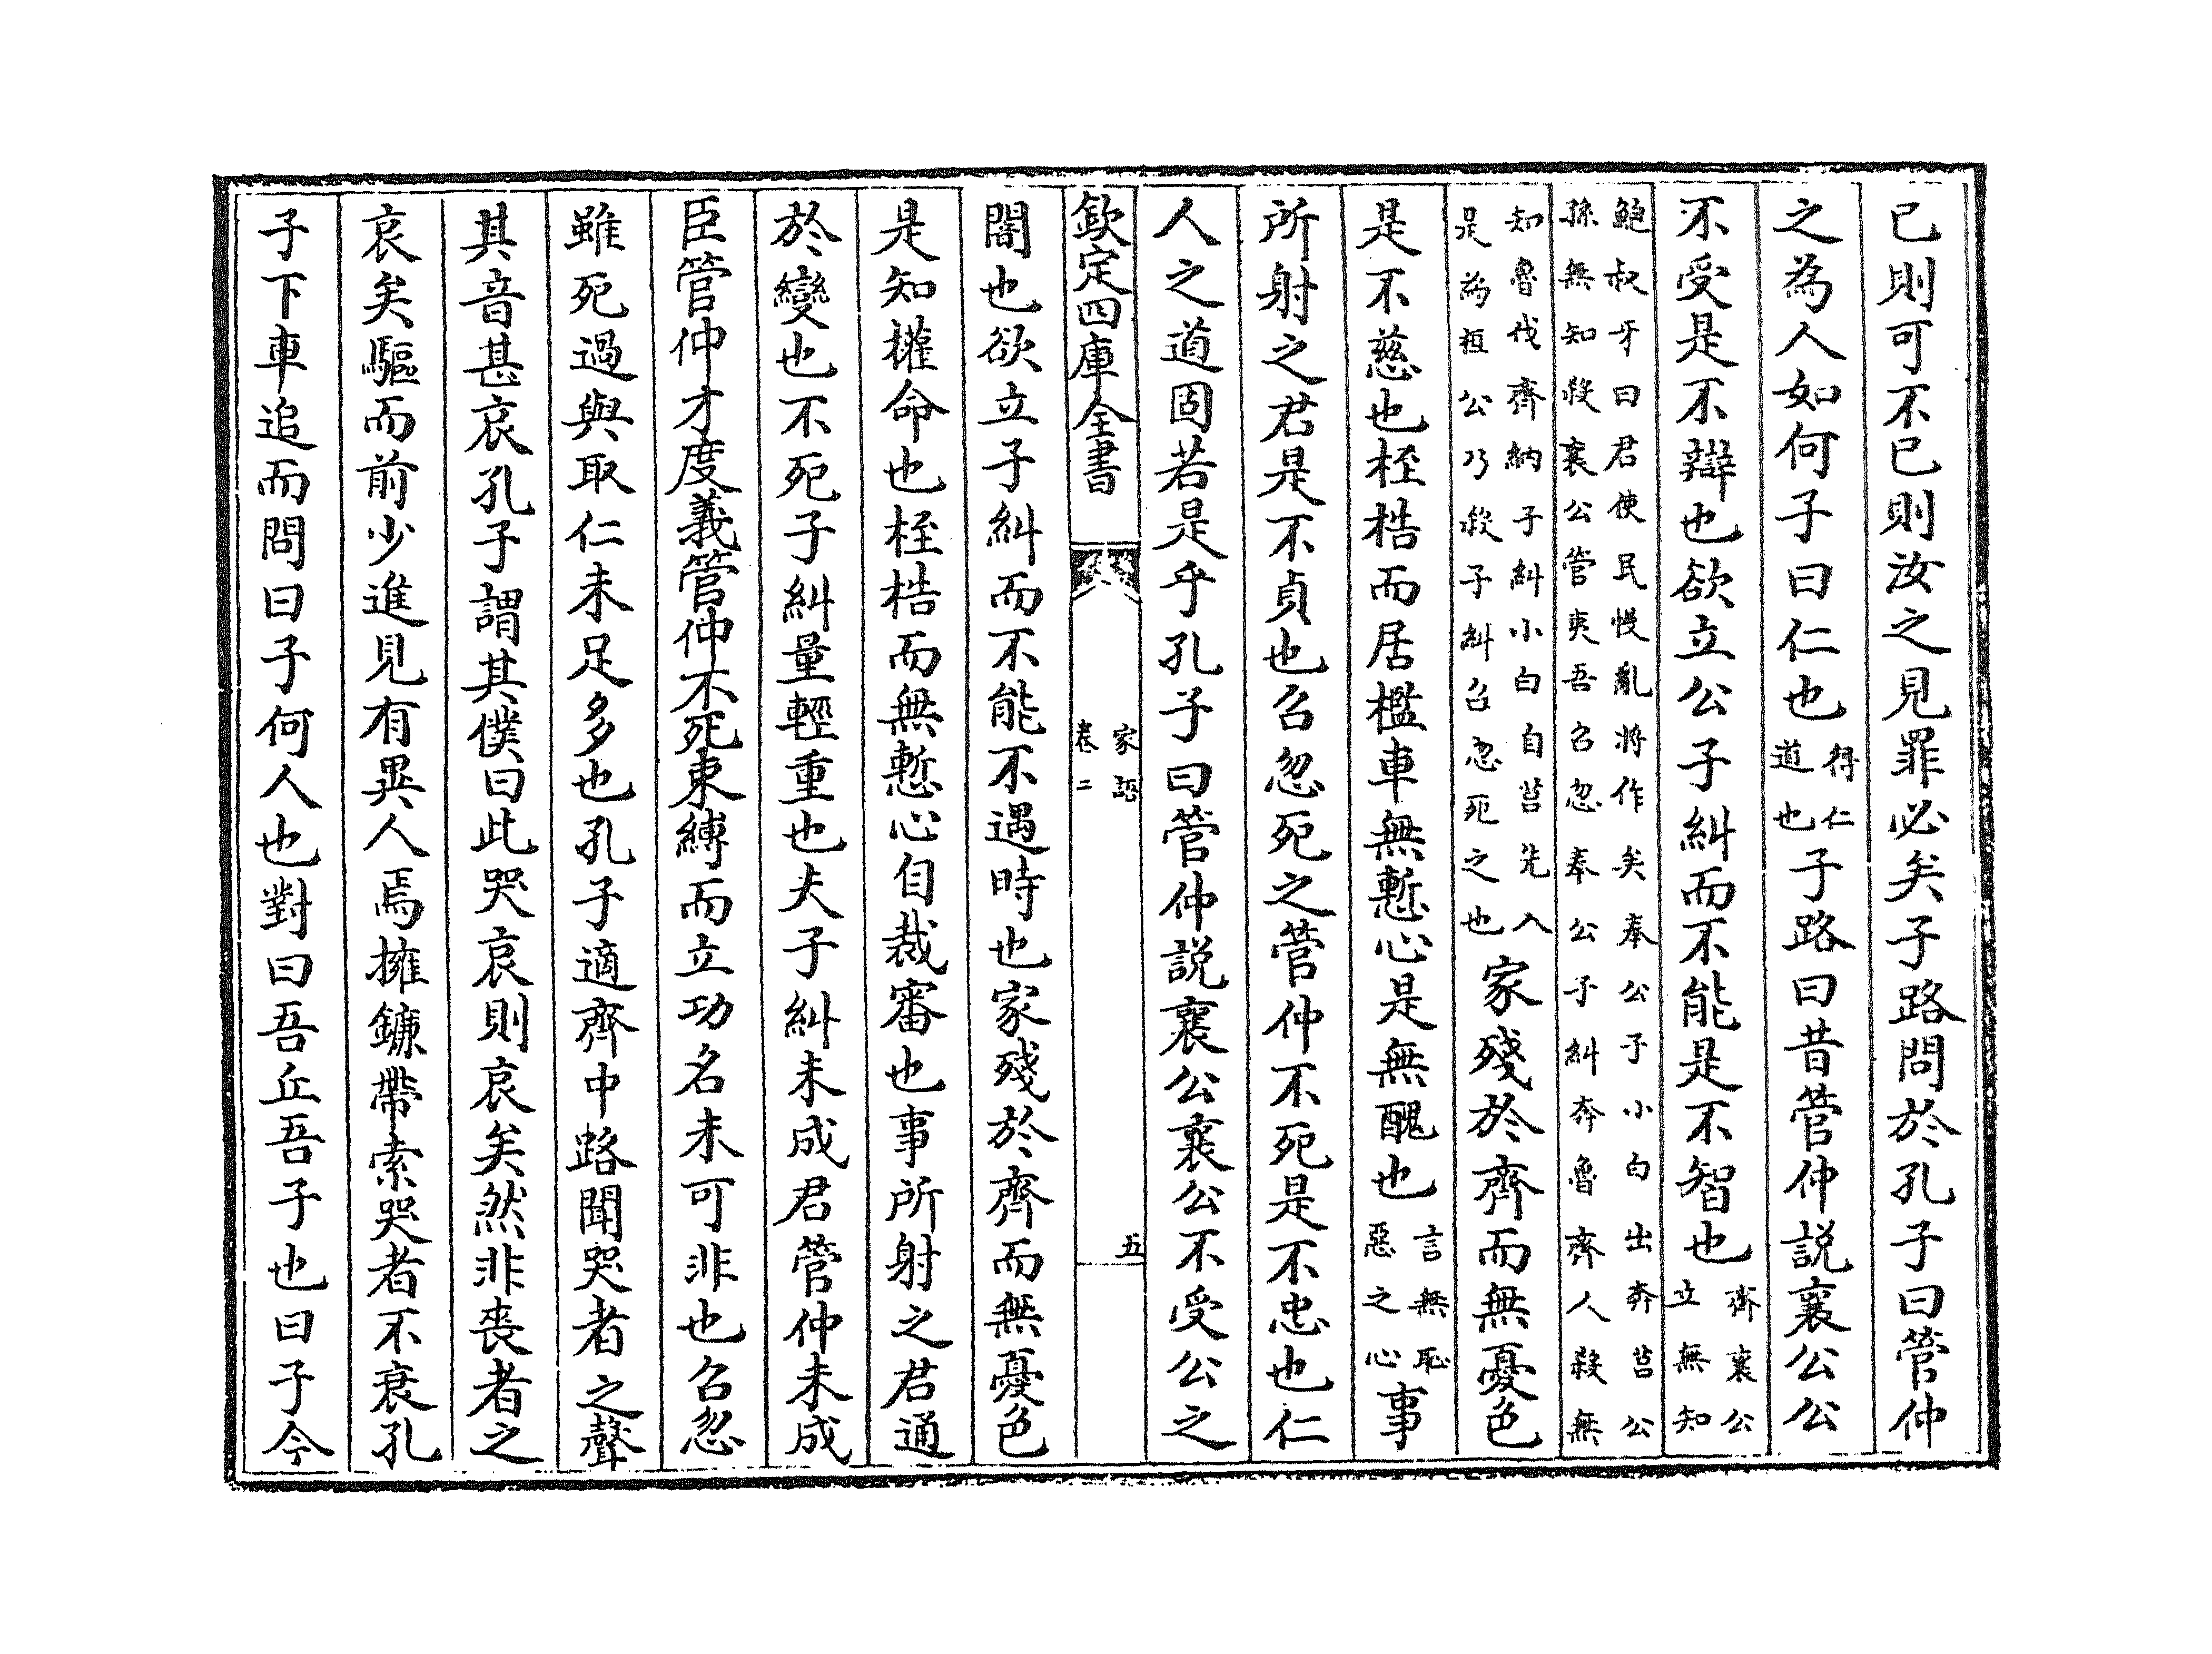 已則可不已則汝之見罪必矣子路問於孔子曰管仲
之為人如何子曰仁也得仁道也子路曰昔管仲説襄公公
不受是不辯也欲立公子糾而不能是不智也齊襄公立無知
鮑叔牙曰君使民慢亂將作矣奉公子小白出奔莒公孫無知殺襄公管夷吾召忽奉公子糾奔魯齊人殺無
知魯伐齊納子糾小白自莒先入是為桓公乃殺子糾召忽死之也家殘於齊而無憂色
是不慈也桎梏而居檻車無慙心是無醜也言無恥惡之心事
所射之君是不貞也召忽死之管仲不死是不忠也仁
人之道固若是乎孔子曰管仲説襄公襄公不受公之
欽定四庫全書
家語
卷二
五
闇也欲立子糾而不能不遇時也家殘於齊而無憂色
是知權命也桎梏而無慙心自裁審也事所射之君通
於變也不死子糾量輕重也夫子糾未成君管仲未成
臣管仲才度義管仲不死束縛而立功名未可非也召忽
雖死過與取仁未足多也孔子適齊中路聞哭者之聲
其音甚哀孔子謂其僕曰此哭哀則哀矣然非喪者之
哀矣驅而前少進見有異人焉擁鐮帶索哭者不衰孔
子下車追而問曰子何人也對曰吾丘吾子也曰子今